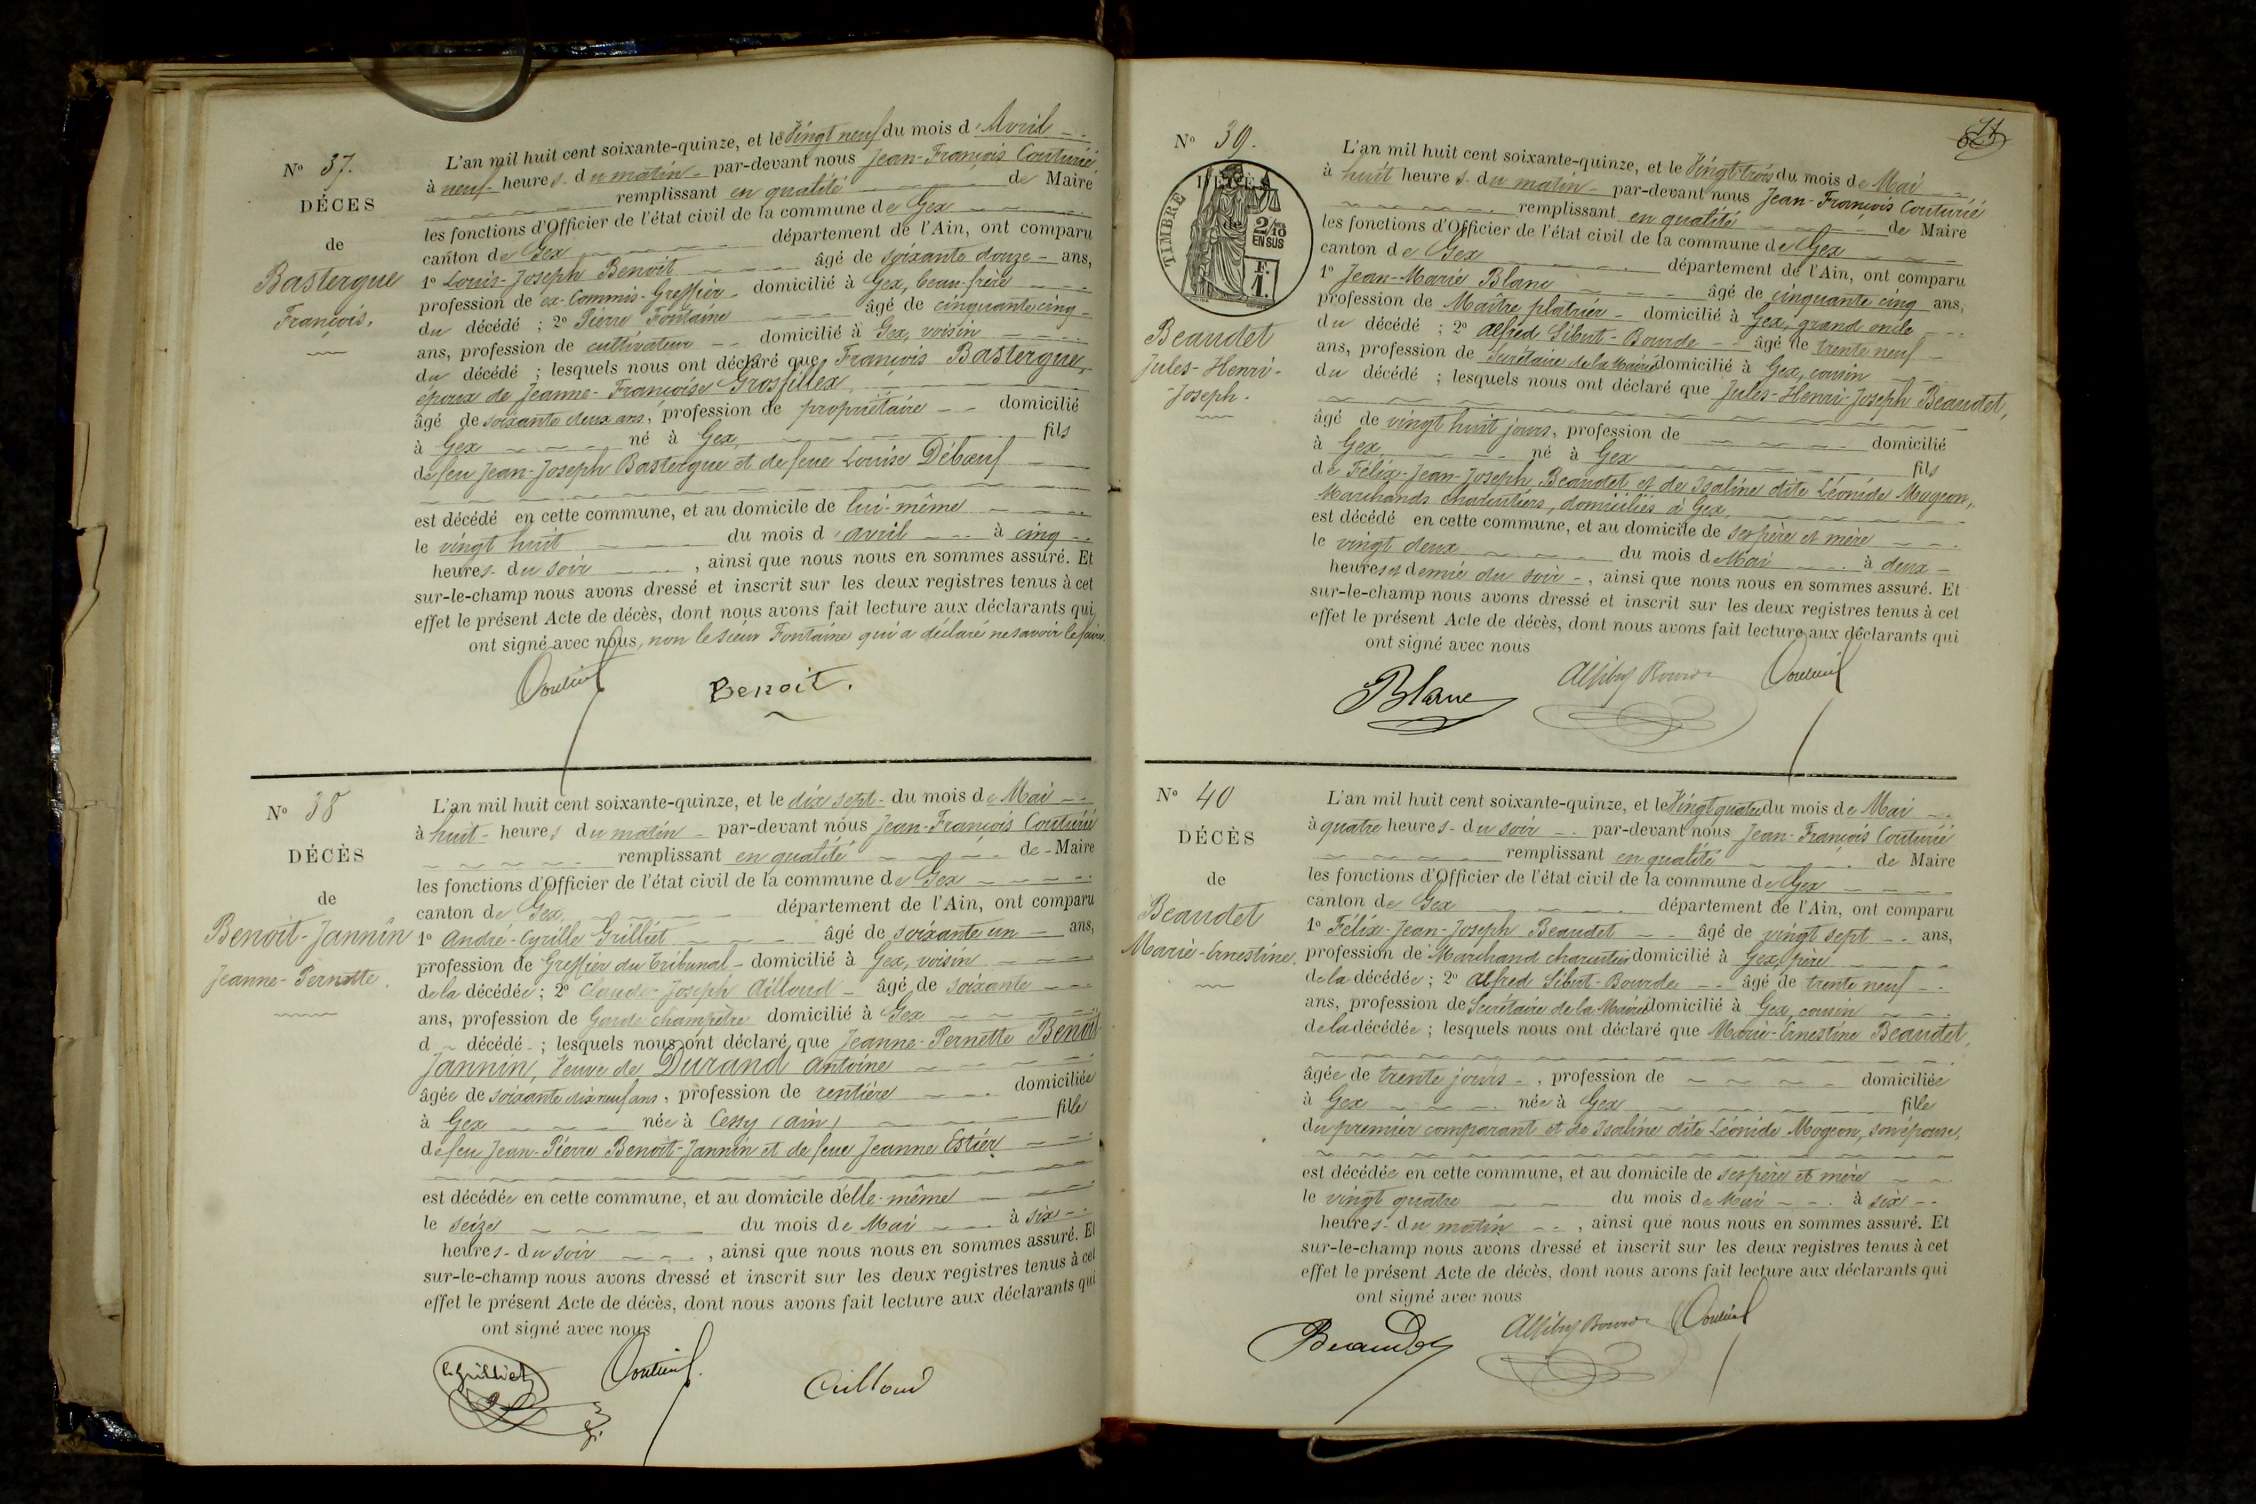 N° 37.
DÉCES
de
Bastergue
François.
L'an mil huit cent soixante-quinze, et le Vingt neuf du mois d'Avril
à neuf heures du matin par-devant nous Jean-François Couturié
remplissant en qualité de Maire
les fonctions d'Officier de l'état civil de la commune de Gex
canton de Gex département de l'Ain, ont comparu
1° Louis-Joseph Benoit âgé de soixante douze ans,
profession de ex-Commis-Greffier domicilié à Gex, beau-frère
du décédé ; 2° Pierre Fontaine âgé de cinquante cinq
ans, profession de cultivateur domicilié à Gex, voisin
du décédé ; lesquels nous ont déclaré que François Bastergue,
époux de Jeanne-Françoise Grosfillex
âgé de soixante deux ans, profession de propriétaire domicilié
à Gex né à Gex fils
de feu Jean-Joseph Bastergue et de feue Louise Débœuf
est décédé en cette commune, et au domicile de lui-même
le vingt huit du mois d'avril à cinq
heures du soir, ainsi que nous nous en sommes assuré. Et
sur-le-champ nous avons dressé et inscrit sur les deux registres tenus à cet
effet le présent Acte de décès, dont nous avons fait lecture aux déclarants qui
ont signé avec nous, non le sieur Fontaine qui a déclaré ne savoir le faire.
Couturié
Benoit.
N° 38
DÉCÈS
de
Benoit-Jannin
Jeanne-Pernette.
L'an mil huit cent soixante-quinze, et le dix sept du mois de Mai
à huit heures du matin par-devant nous Jean-François Couturié
remplissant en qualité de Maire
les fonctions d'Officier de l'état civil de la commune de Gex
canton de Gex département de l'Ain, ont comparu
1° André-Cyrille Grilliet âgé de soixante un ans,
profession de Greffier du Tribunal domicilié à Gex, voisin
de la décédée ; 2° Claude-Joseph Cuilloud âgé de soixante
ans, profession de Garde champêtre domicilié à Gex
d décédé ; lesquels nous ont déclaré que Jeanne-Pernette Benoit
Jannin, Veuve de Durand Antoine
âgée de soixante dix neuf ans, profession de rentière domiciliée
à Gex née à Cessy (ain) fille
de feu Jean-Pierre Benoit-Jannin et de feue Jeanne Estier
est décédée en cette commune, et au domicile d'elle-même
le seize du mois de Mai à six
heures du soir, ainsi que nous nous en sommes assuré. Et
sur-le-champ nous avons dressé et inscrit sur les deux registres tenus à cet
effet le présent Acte de décès, dont nous avons fait lecture aux déclarants qui
ont signé avec nous
Grilliet
Couturié
Cuilloud
N° 39.
DÉCÈS
de
TIMBRE
2/10 EN SUS
F. 1.
Beaudet
Jules-Henri-
-Joseph.
L'an mil huit cent soixante-quinze, et le Vingt-trois du mois de Mai
à huit heures du matin par-devant nous Jean-François Couturié
remplissant en qualité de Maire
les fonctions d'Officier de l'état civil de la commune de Gex
canton de Gex département de l'Ain, ont comparu
1° Jean-Marie Blanc âgé de cinquante cinq ans,
profession de Maître plâtrier domicilié à Gex, grand oncle
du décédé ; 2° Alfred Sibut-Bourde âgé de trente neuf
ans, profession de Secrétaire de la Mairie domicilié à Gex, cousin
du décédé ; lesquels nous ont déclaré que Jules-Henri-Joseph Beaudet,
âgé de vingt huit jours, profession de domicilié
à Gex né à Gex fils
de Félix-Jean-Joseph Beaudet et de Isaline dite Léonide Mugeon,
Marchands charcutiers, domiciliés à Gex
est décédé en cette commune, et au domicile de ses père et mère
le vingt deux du mois de Mai à deux
heures et demie du soir, ainsi que nous nous en sommes assuré. Et
sur-le-champ nous avons dressé et inscrit sur les deux registres tenus à cet
effet le présent Acte de décès, dont nous avons fait lecture aux déclarants qui
ont signé avec nous
Blanc
A Sibut Bourde
Couturié
N° 40
DÉCÈS
de
Beaudet
Marie-Ernestine.
L'an mil huit cent soixante-quinze, et le Vingt quatre du mois de Mai
à quatre heures du soir par-devant nous Jean-François Couturié
remplissant en qualité de Maire
les fonctions d'Officier de l'état civil de la commune de Gex
canton de Gex département de l'Ain, ont comparu
1° Félix-Jean-Joseph Beaudet âgé de vingt sept ans,
profession de Marchand charcutier domicilié à Gex, père
de la décédée ; 2° Alfred Sibut-Bourde âgé de trente neuf
ans, profession de Secrétaire de la Mairie domicilié à Gex, cousin
de la décédée ; lesquels nous ont déclaré que Marie-Ernestine Beaudet,
âgée de trente jours, profession de domiciliée
à Gex née à Gex fille
du premier comparant et de Isaline dite Léonide Mugeon, son épouse,
est décédée en cette commune, et au domicile de ses père et mère
le vingt quatre du mois de Mai à six
heures du matin, ainsi que nous nous en sommes assuré. Et
sur-le-champ nous avons dressé et inscrit sur les deux registres tenus à cet
effet le présent Acte de décès, dont nous avons fait lecture aux déclarants qui
ont signé avec nous
Beaudet
A Sibut Bourde
Couturié